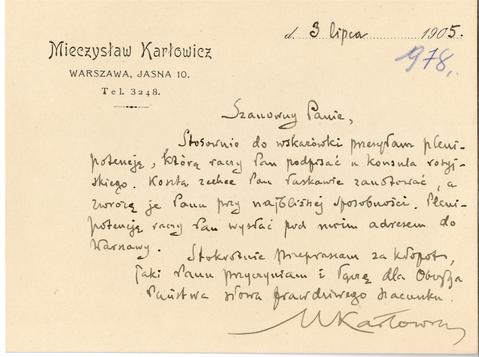 Mieczysław Karłowicz
WARSZAWA, JASNA 10.
Tel. 3248.
d. 3 lipca 1905.
978,
Szanowny Panie,
Stosownie do wskazówki przesyłam pleni-
potencję, którą raczy Pan podpisać u konsula rosyj-
skiego. Koszta zechce Pan łaskawie zanotować, a
zwrócę je Panu przy najbliższej sposobności. Pleni-
potencję raczy Pan wysłać pod moim adresem do
Warszawy.
Stokrotnie przepraszam za kłopot,
jaki Panu przyczyniam i łączę dla Obojga
Państwa słowa prawdziwego szacunku.
MKarłowicz